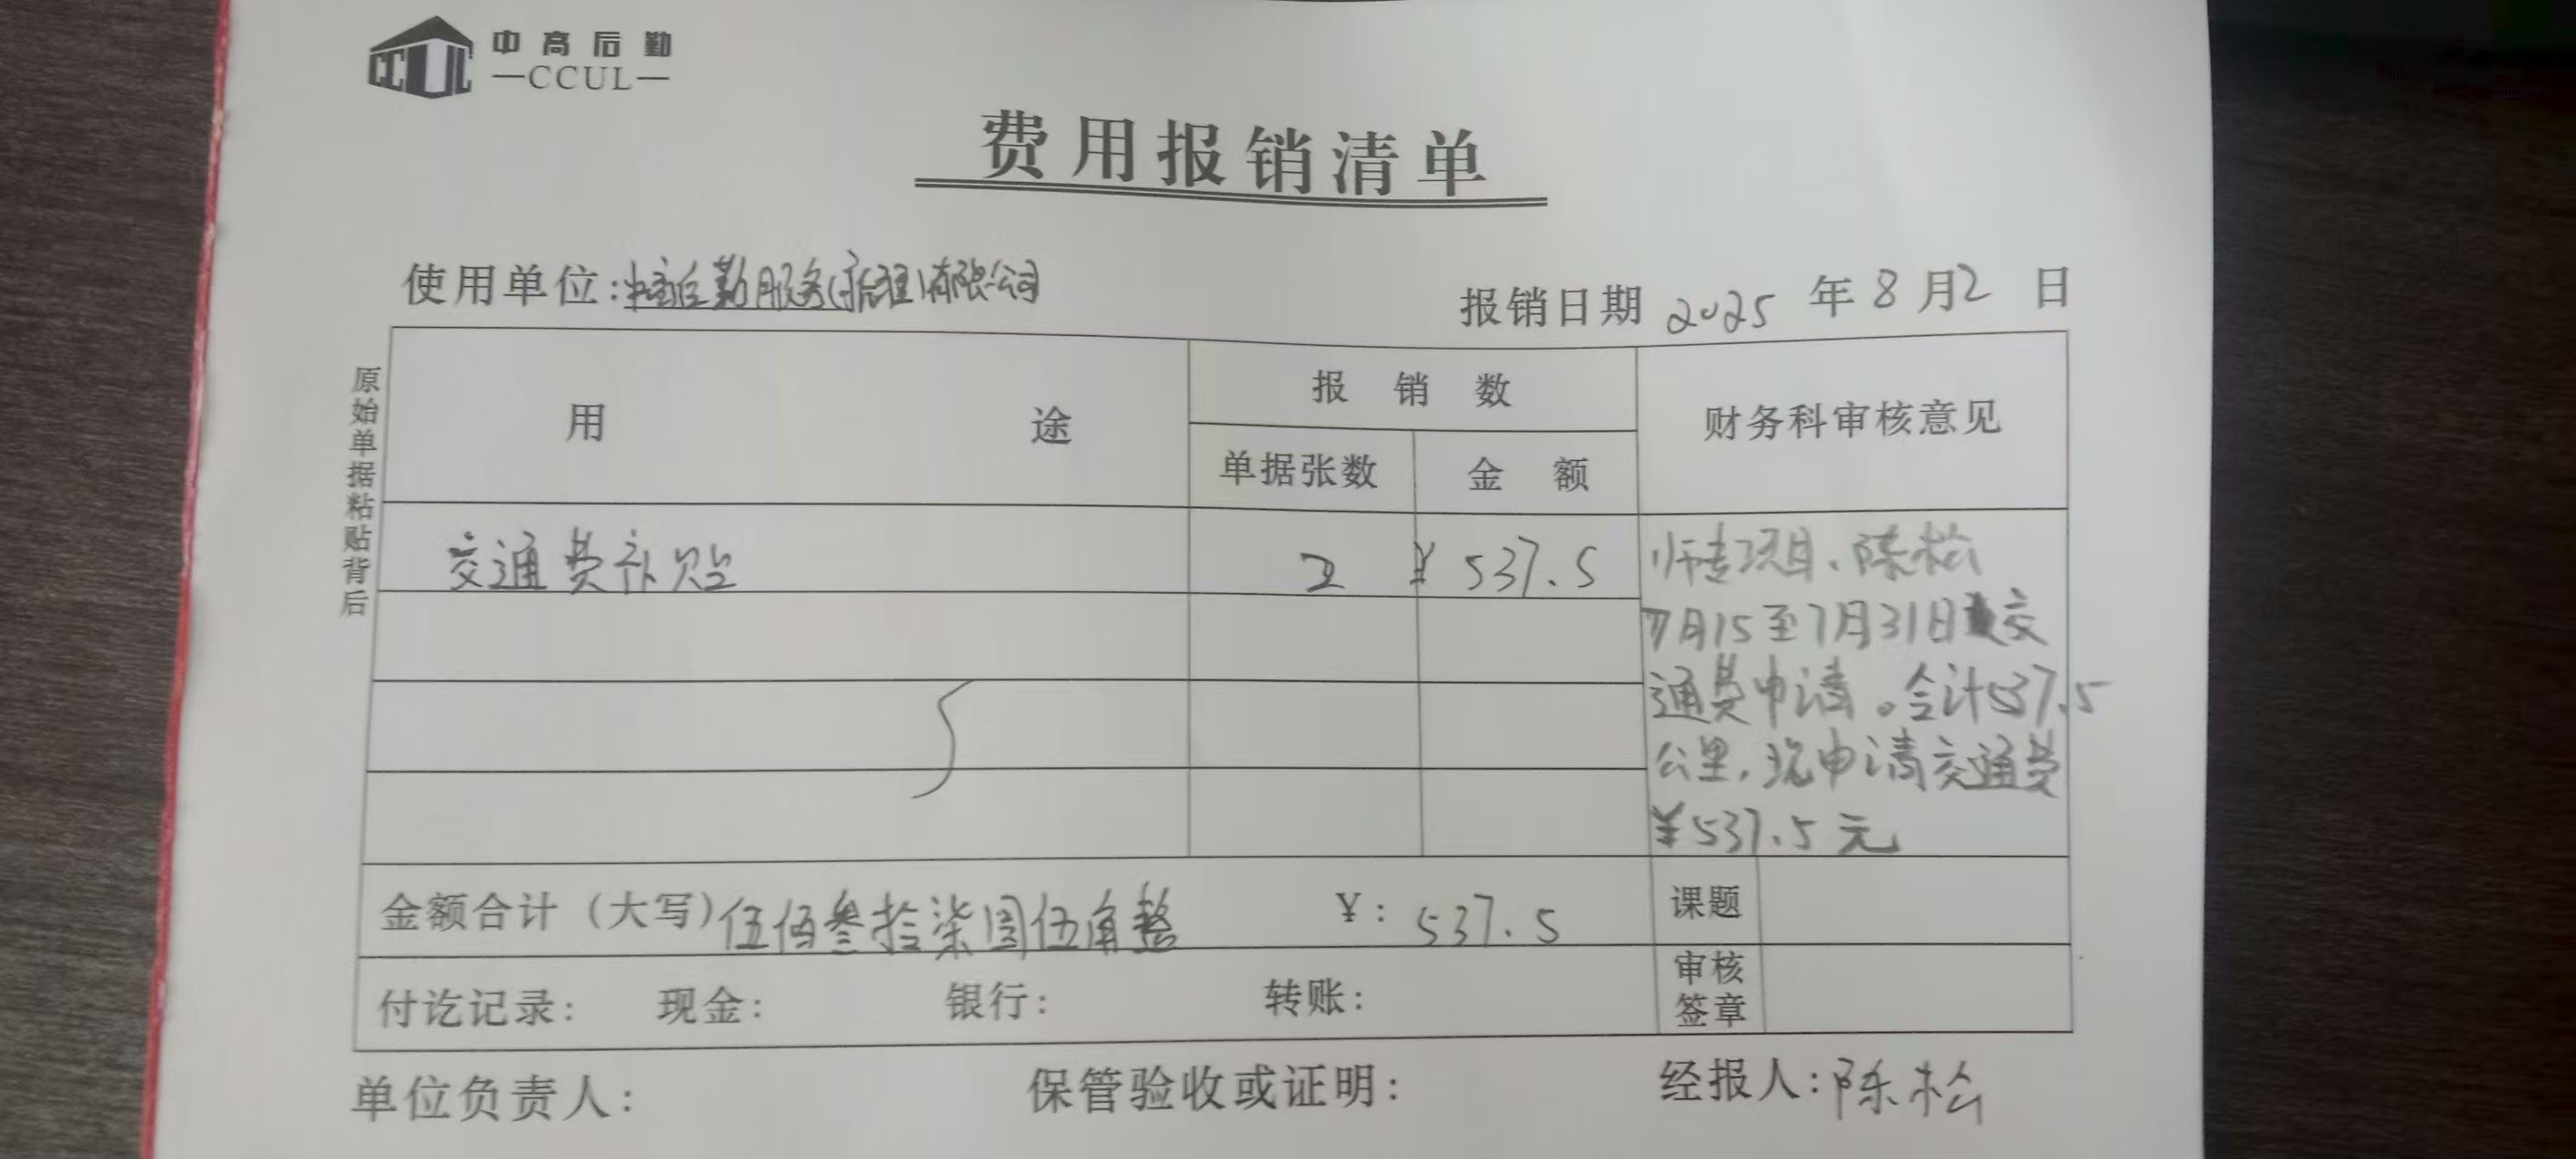 中高后勤
CCUL
费用报销清单
使用单位:中高后勤服务()有限公司
报销日期 2025 年 8 月 2 日
原始单据粘贴背后
用途
报销数
财务科审核意见
单据张数
金额
交通费补贴
2
¥ 537.5
师专项目、陈松
7月15至7月31日交
通费申请。合计537.5
公里,现申请交通费
¥537.5元
金额合计(大写)伍佰叁拾柒圆伍角整
¥: 537.5
课题
付讫记录: 现金: 银行: 转账:
审核签章
单位负责人:
保管验收或证明:
经报人:陈松